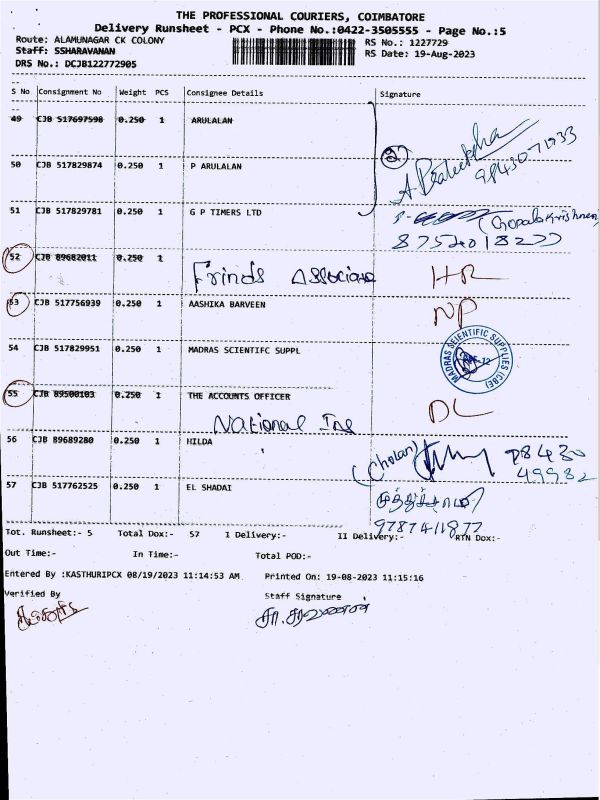 THE PROFESSIONAL COURIERS, COIMBATORE
Delivery Runsheet - PCX - Phone No.:0422-3505555 - Page No.:5
Route: ALAMUNAGAR CK COLONY RS No.: 1227729
Staff: SSHARAVANAN RS Date: 19-Aug-2023
DRS No.: DCJB122772905
S No Consignment No Weight PCS Consignee Details Signature
49 CJB 517697598 0.250 1 ARULALAN
50 CJB 517829874 0.250 1 P ARULALAN
9843071933
51 CJB 517829781 0.250 1 G P TIMERS LTD
(Gopalakrishnan)
8754018277
52 CJB 89682011 0.250 1
Frinds Associans HR
53 CJB 517756939 0.250 1 AASHIKA BARVEEN NP
54 CJB 517829951 0.250 1 MADRAS SCIENTIFC SUPPL
MADRAS SCIENTIFIC SUPPLIES (CBE)
55 CJB 89500103 0.250 1 THE ACCOUNTS OFFICER DL
National Ins
56 CJB 89689280 0.250 1 HILDA
(Cholan) 98430
49982
57 CJB 517762525 0.250 1 EL SHADAI
9787411877
Tot. Runsheet:- 5 Total Dox:- 57 I Delivery:- II Delivery:- RTN Dox:-
Out Time:- In Time:- Total POD:-
Entered By :KASTHURIPCX 08/19/2023 11:14:53 AM Printed On: 19-08-2023 11:15:16
Verified By Staff Signature
சா.சரவணன்